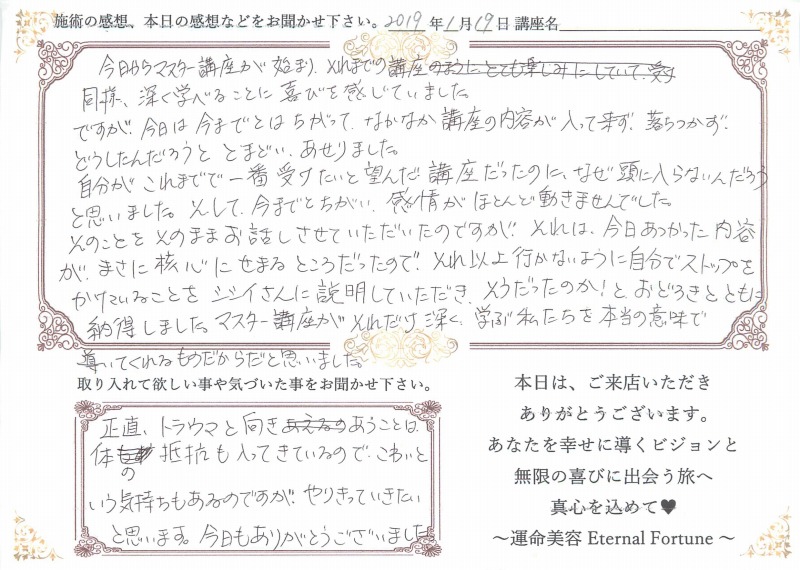 施術の感想、本日の感想などをお聞かせ下さい。2019年1月19日 講座名
今日からマスター講座が始まり、それまでの講座のようにとても楽しみにしていて、受け
同様、深く学べることに喜びを感じていました。
ですが、今日は今までとはちがって、なかなか講座の内容が入って来ず、落ちつかず、
どうしたんだろうと とまどい、あせりました。
自分が これまでで一番受けたいと望んだ講座だったのに、なぜ頭に入らないんだろう
と思いました。そして、今までとちがい、感情がほとんど動きませんでした。
そのことを そのままお話しさせていただいたのですが、それは、今日あつかった内容
が、まさに核心にせまるところだったので、それ以上行かないように自分でストップを
かけていることを シシイさんに説明していただき、そうだったのか!と、おどろきとともに
納得しました。マスター講座が それだけ深く、学ぶ私たちを本当の意味で
導いてくれるものだからだと思いました。
取り入れて欲しい事や気づいた事をお聞かせ下さい。
正直、トラウマと向きあうことは、
体の抵抗も入ってきているので、こわいと
いう気持ちもあるのですが、やりきっていきたい
と思います。今日もありがとうございました
本日は、ご来店いただき
ありがとうございます。
あなたを幸せに導くビジョンと
無限の喜びに出会う旅へ
真心を込めて♥
～運命美容 Eternal Fortune～